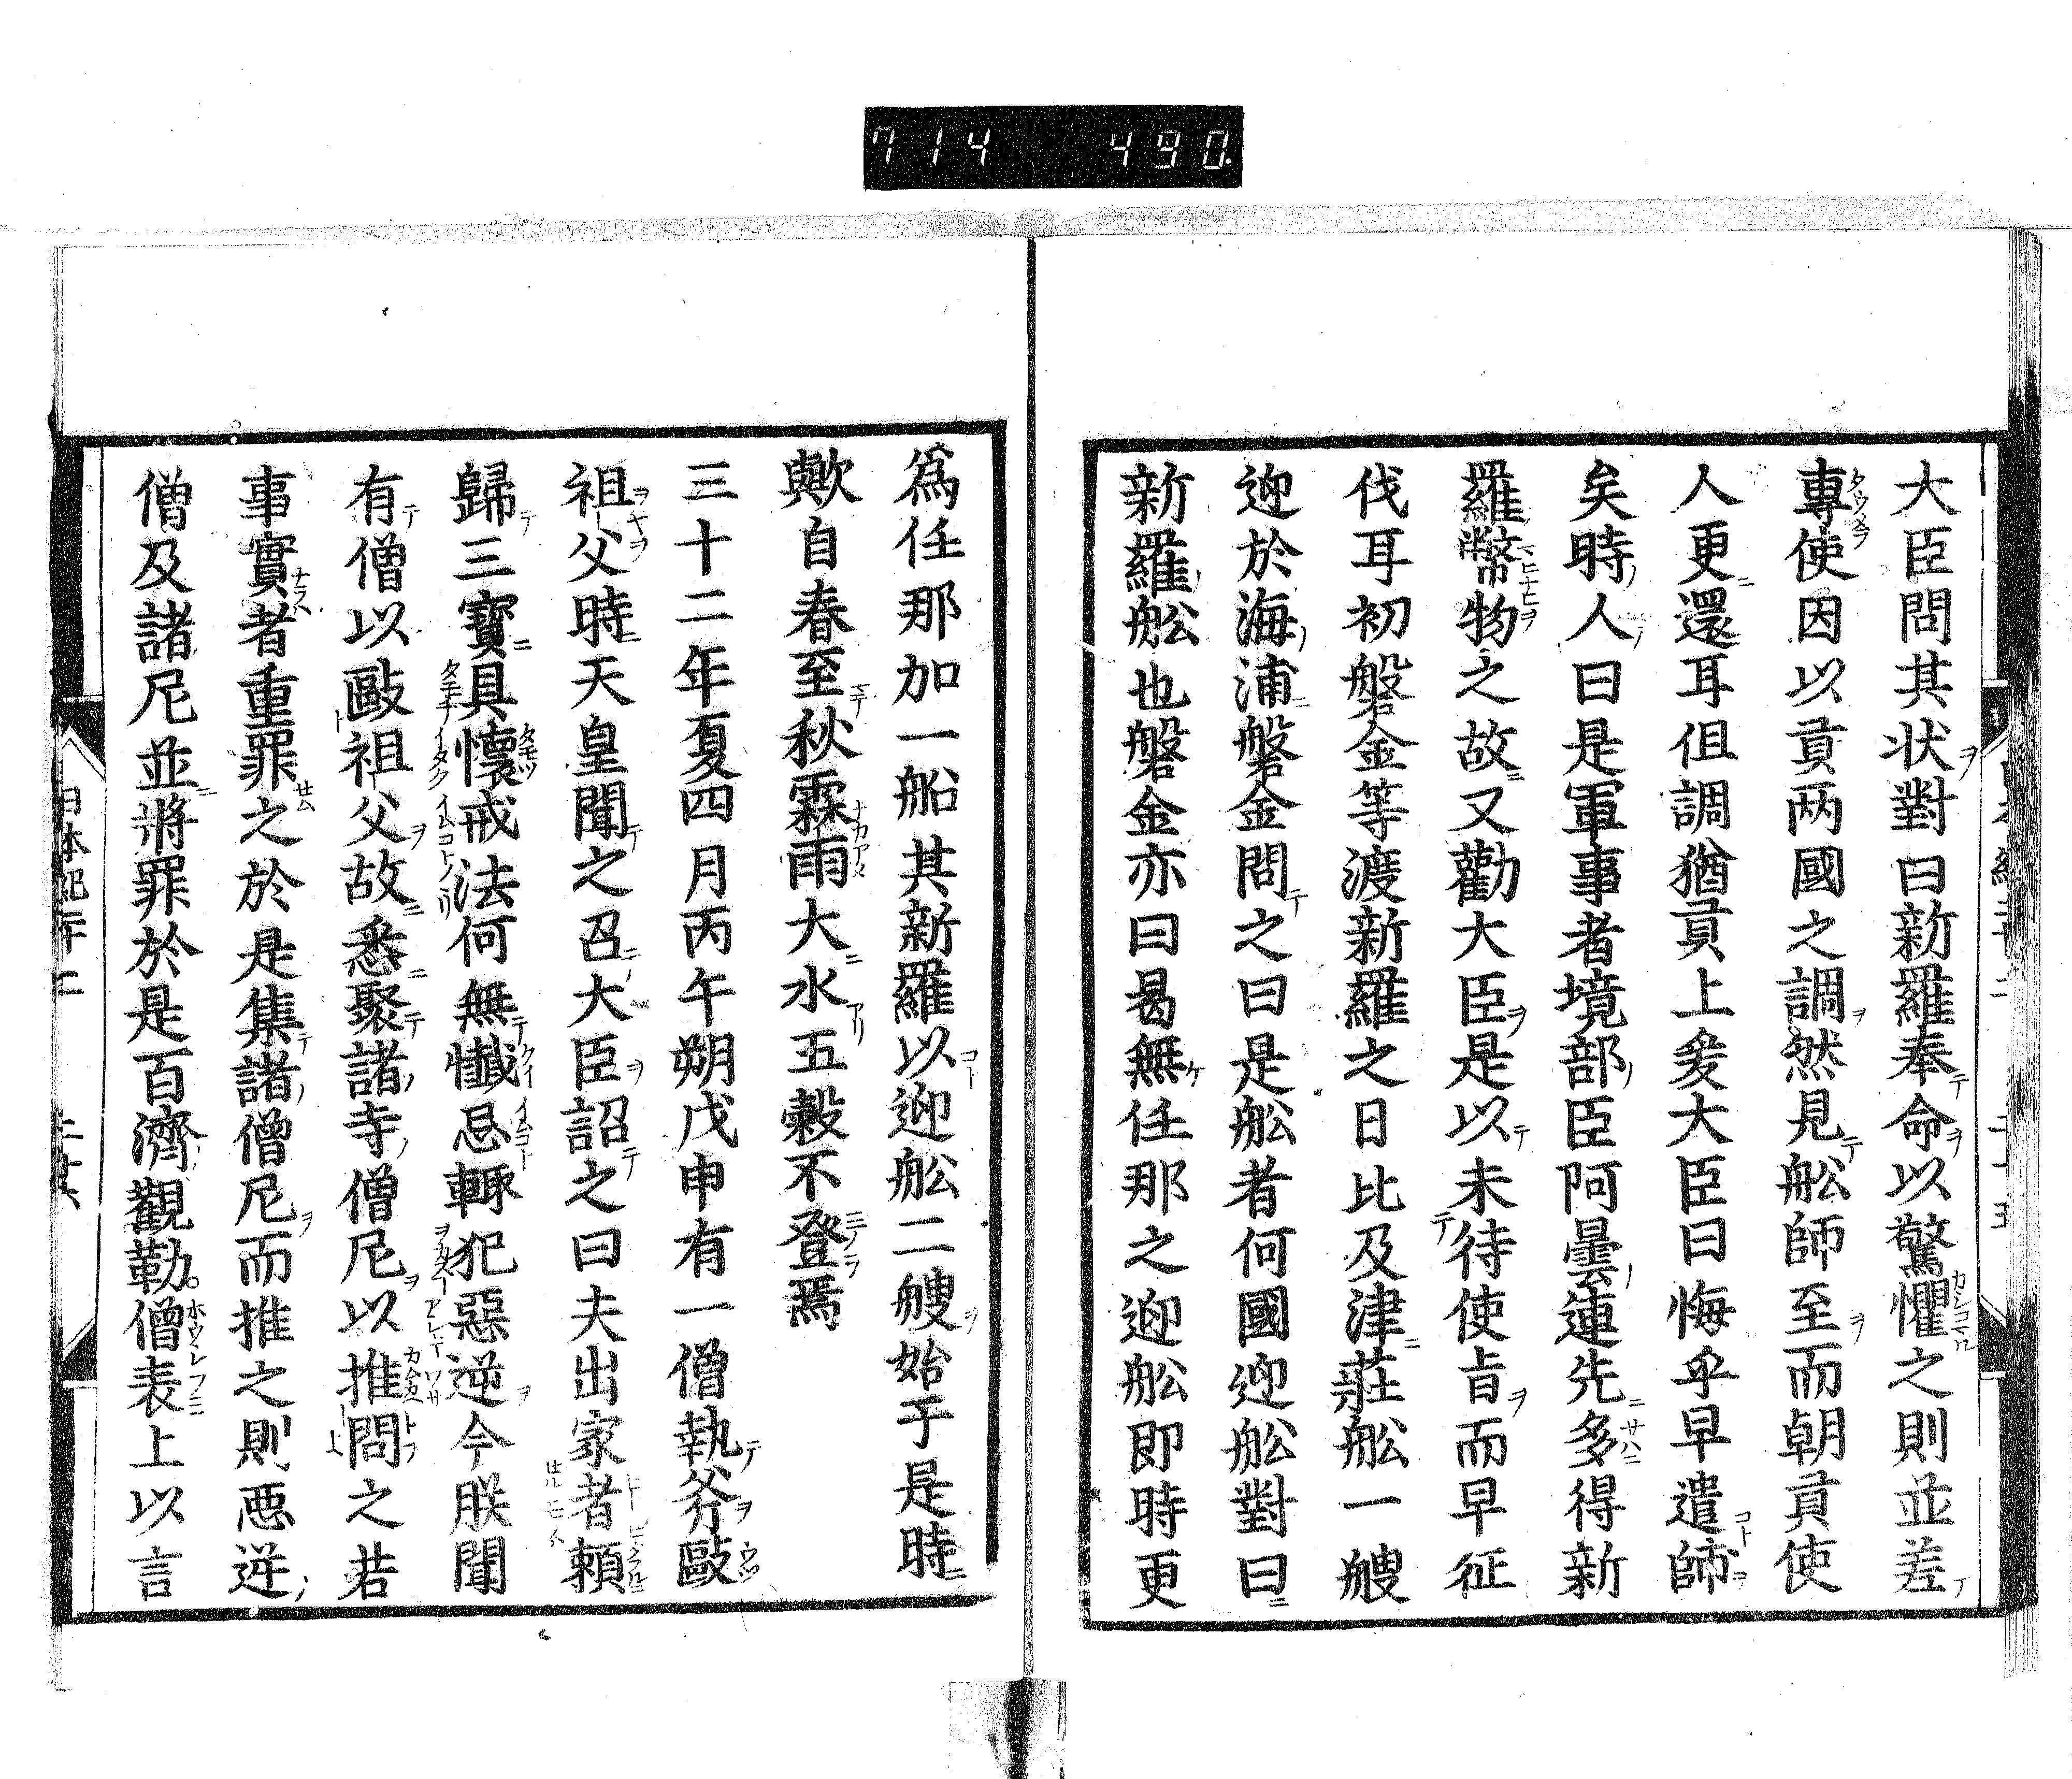 714 490
大臣問其状對曰新羅奉命以驚懼之則並差
專使因以貢两國之調然見舩師至而朝貢使
人更還耳伹調猶貢上爰大臣曰悔乎早遣師
矣時人曰是軍事者境部臣阿曇連先多得新
羅幣物之故又勸大臣是以未待使旨而早征
伐耳初磐金等渡新羅之日比及津莊舩一艘
迎於海浦磐金問之曰是舩者何國迎舩對曰
新羅舩也磐金亦曰曷無任那之迎舩即時更
爲任那加一船其新羅以迎舩二艘始于是時
歟自春至秋霖雨大水五穀不登焉
三十二年夏四月丙午朔戊申有一僧執斧毆
祖父時天皇聞之召大臣詔之曰夫出家者頼
歸三寶具懷戒法何無懺忌輙犯惡逆今朕聞
有僧以毆祖父故悉聚諸寺僧尼以推問之若
事實者重罪之於是集諸僧尼而推之則惡逆
僧及諸尼並將罪於是百濟觀勒僧表上以言